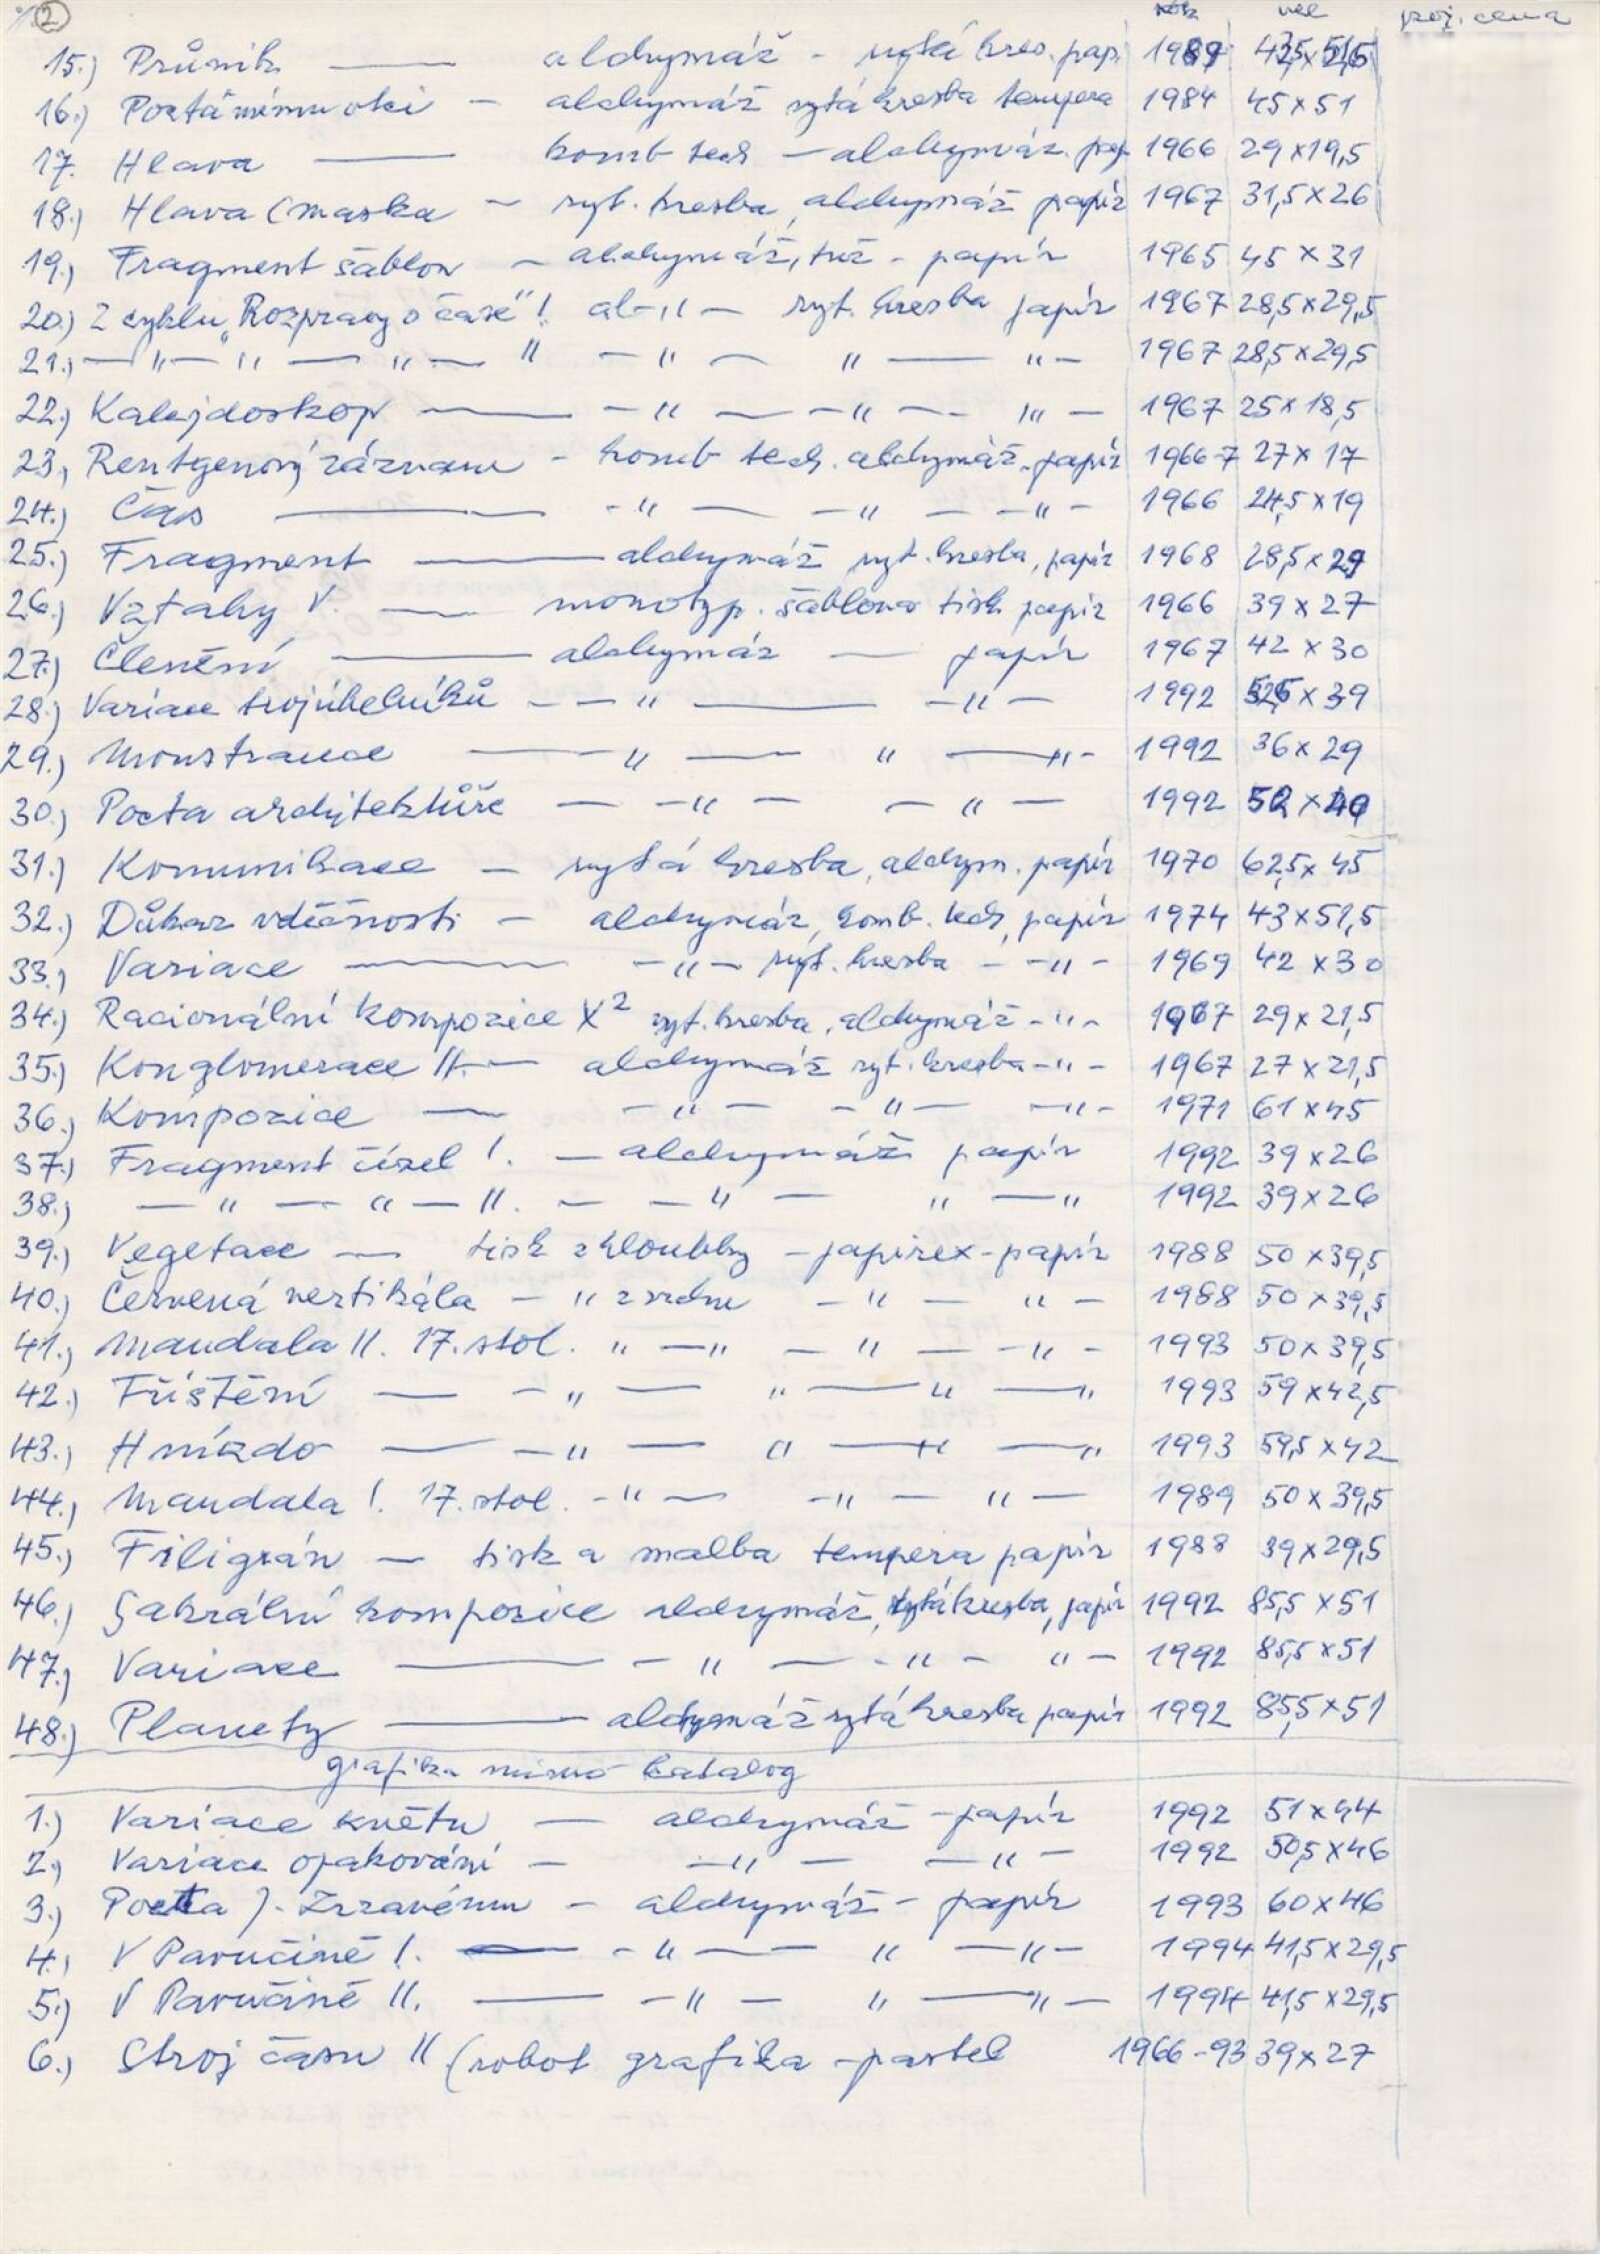 2 rok vel poj. cena
15.) Průnik — alchymáž - rytá kres. pap. 1989 42,5x51,5
16.) Pocta mému otci — alchymáž rytá kresba tempera 1984 45x51
17. Hlava — komb tech — alchymáž. pap. 1966 29x19,5
18.) Hlava (maska — ryt. kresba, alchymáž papír 1967 31,5x26
19.) Fragment šablon — alchymáž, tuš - papír 1965 45x31
20.) Z cyklu „Rozpravy o čase" I. al-"- ryt. kresba papír 1967 28,5x29,5
21.) —"—"—"—" II —"— " — "- 1967 28,5x29,5
22.) Kalejdoskop — -"- -"- "- 1967 25x18,5
23.) Rentgenový záznam - komb tech. alchymáž-papír 1966-7 27x17
24.) Čas — -"- -"- -"- 1966 24,5x19
25.) Fragment — alchymáž ryt. kresba, papír 1968 28,5x29
26.) Vztahy V. — monotyp. šablona tisk papír 1966 39x27
27.) Členění — alchymáž — papír 1967 42x30
28.) Variace trojúhelníků - -"- -"- 1992 52,5x39
29.) Monstrance — " — " — "- 1992 36x29
30.) Pocta architektuře — -"- -"- 1992 52x40
31.) Komunikace — rytá kresba, alchym. papír 1970 62,5x45
32.) Důkaz vděčnosti — alchymáž, komb. tech, papír 1974 43x51,5
33.) Variace — -"- ryt. kresba - -"- 1969 42x30
34.) Racionální kompozice X² ryt. kresba, alchymáž -"- 1967 29x21,5
35.) Konglomerace II. — alchymáž ryt. kresba -"- 1967 27x21,5
36.) Kompozice — -"- -"- -"- 1971 61x45
37.) Fragment čísel I. — alchymáž papír 1992 39x26
38.) —"—"— II. — -"- "—" 1992 39x26
39.) Vegetace — tisk z hloubky - papirex - papír 1988 50x39,5
40.) Červená vertikála — " z - -"- "- 1988 50x39,5
41.) Mandala II. 17. stol. "—" -"- -"- 1993 50x39,5
42.) Tříštění — -"- "—" —" 1993 59x42,5
43.) Hnízdo — -"- "—" —" 1993 59,5x42
44.) Mandala I. 17. stol. -"- -"- "- 1989 50x39,5
45.) Filigrán — tisk a malba tempera papír 1988 39x29,5
46.) Sakrální kompozice alchymáž, rytá kresba, papír 1992 85,5x51
47.) Variace — -"- -"- "- 1992 85,5x51
48.) Planety — alchymáž rytá kresba papír 1992 85,5x51
grafika mimo katalog
1.) Variace květu — alchymáž - papír 1992 51x44
2.) Variace opakování — -"- -"- 1992 50,5x46
3.) Pocta J. Zrzavému — alchymáž - papír 1993 60x46
4.) V Pavučině I. — -"- " -"- 1994 41,5x29,5
5.) V Pavučině II. — -"- " —"— 1994 41,5x29,5
6.) Stroj času II (robot grafika - pastel 1966-93 39x27